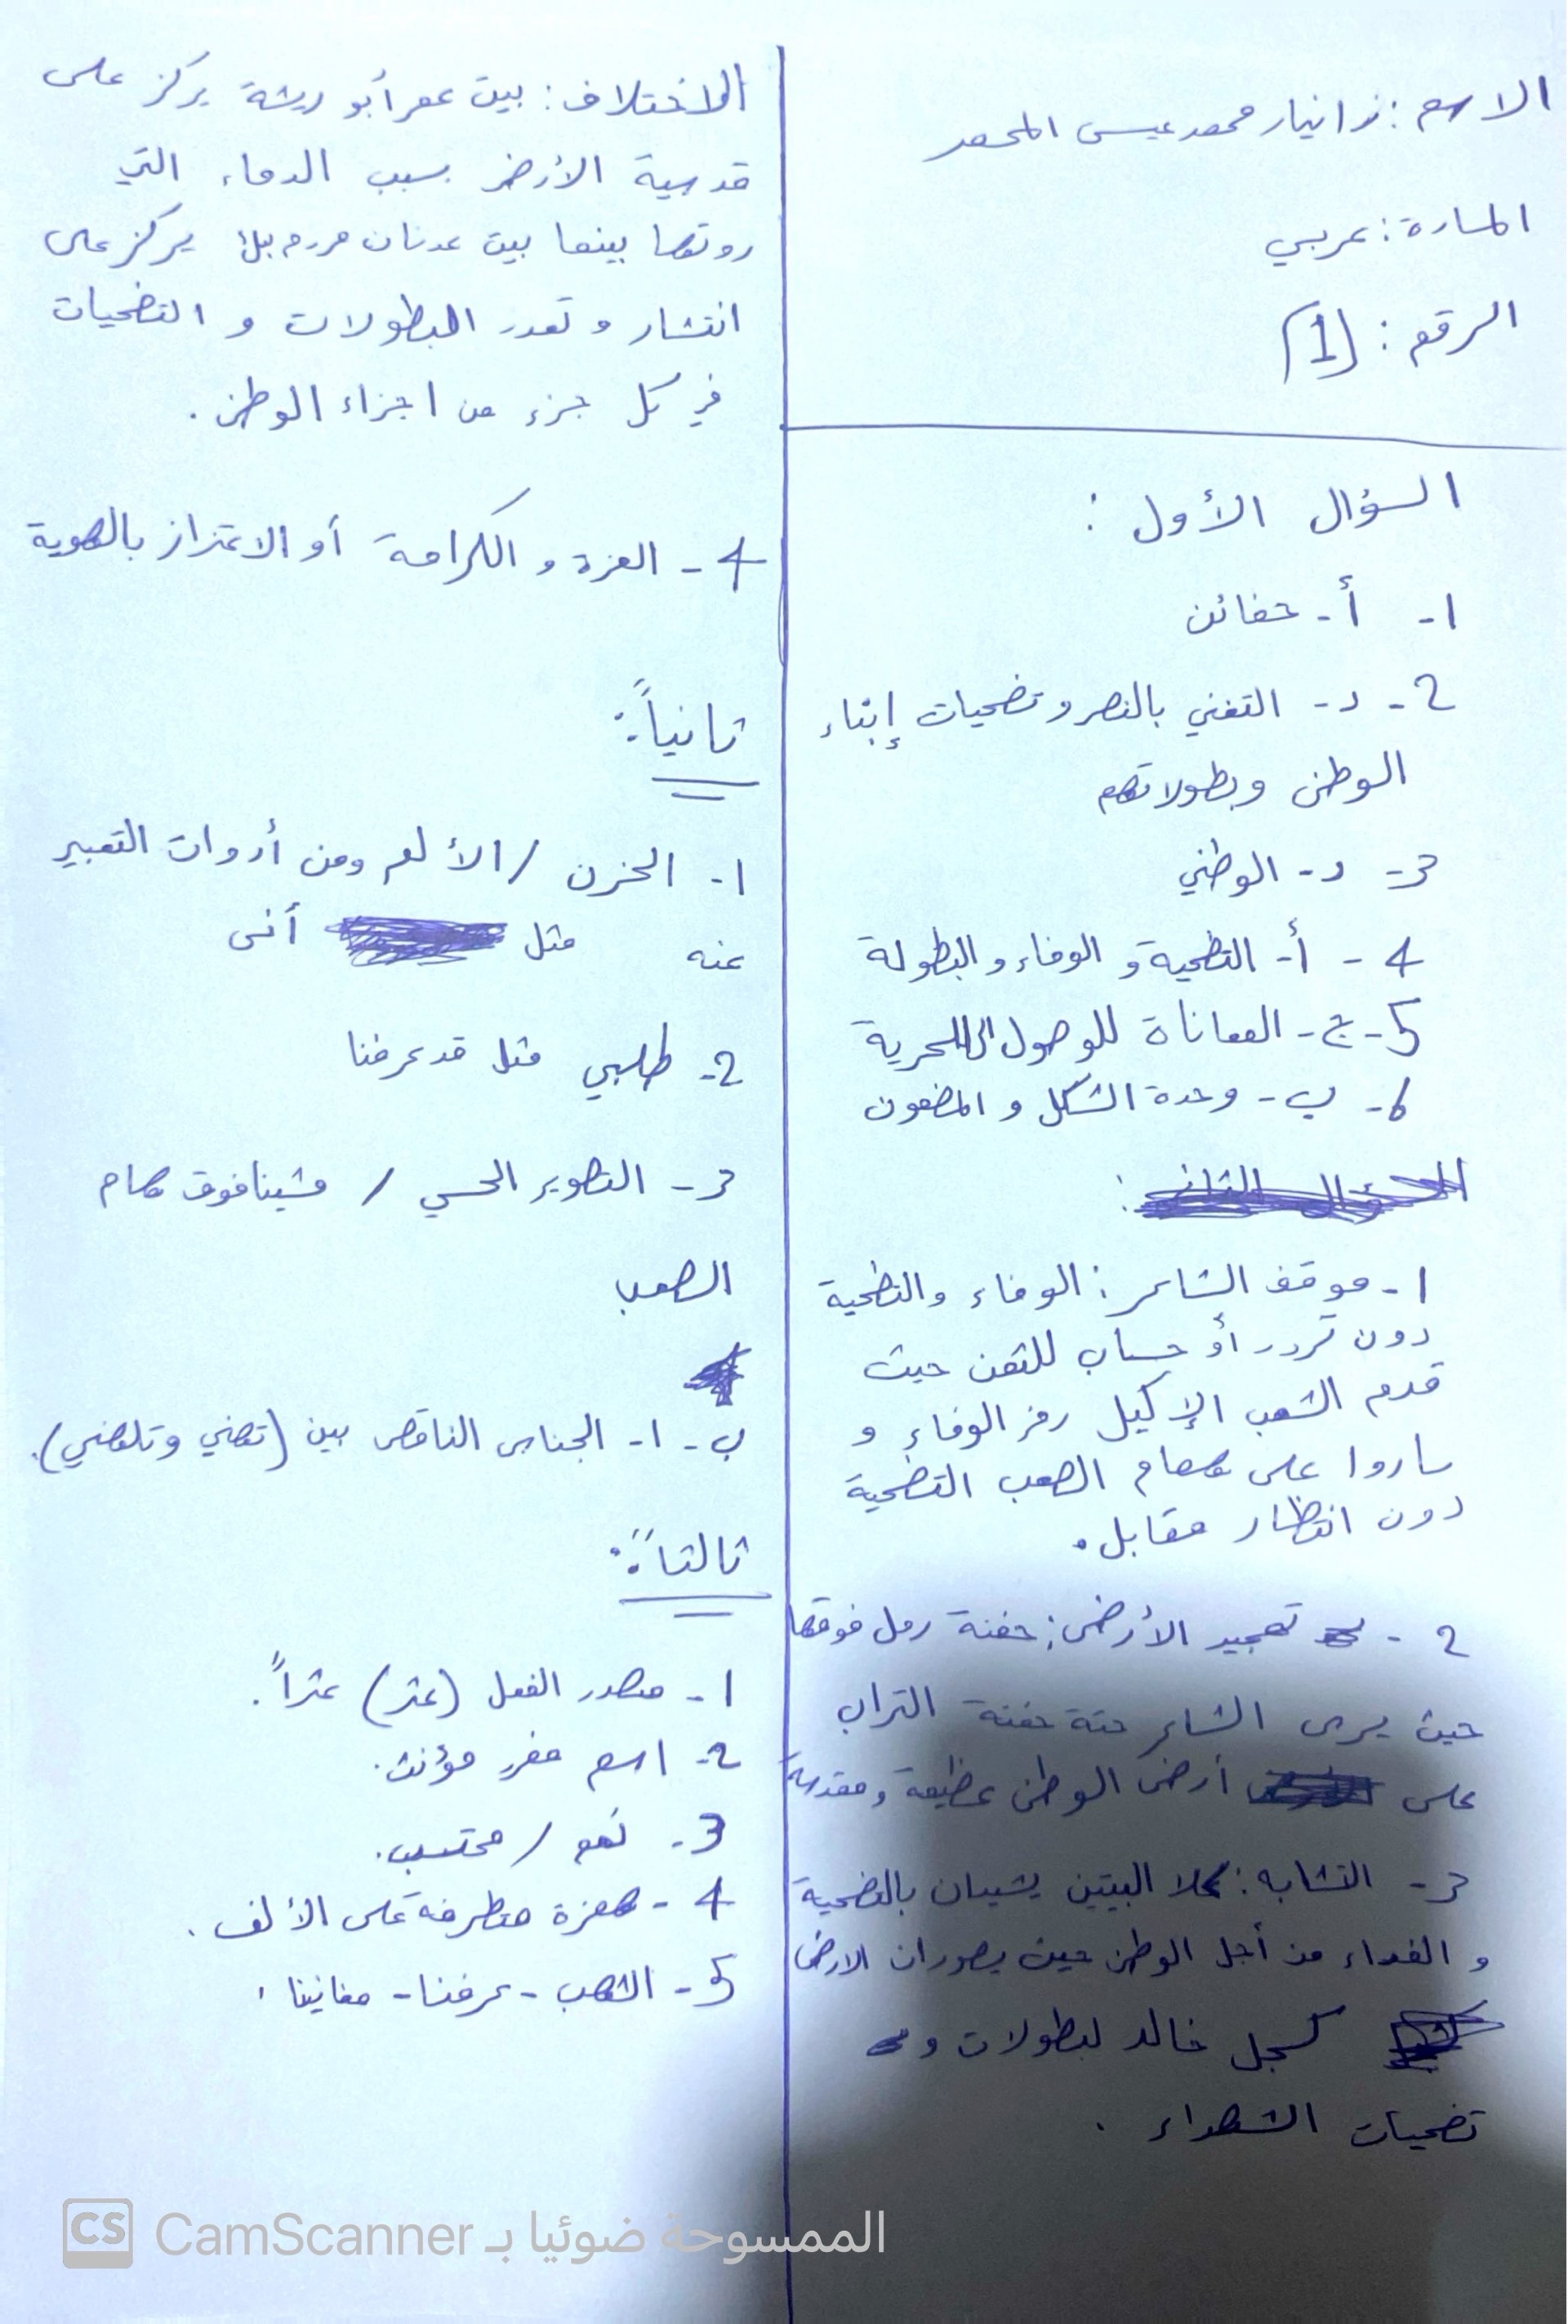 الاسم: زانيار محمد عيسى المحمد
المادة: عربي
الرقم: (1)
السؤال الأول:
1- أ- حفائن
2- د- التغني بالنصر وتضحيات إبناء
الوطن وبطولاتهم
3- د- الوطني
4- أ- التظحية و الوفاء و البطولة
5- ج- المعاناة للوصول للحرية
6- ب- وحدة الشكل و المضمون
1- موقف الشاعر: الوفاء والتظحية
دون تردد أو حساب للثمن حيث
قدم الشعب الإكيل رمز الوفاء و
ساروا على هام الصعب التضحية
دون انتظار مقابل.
2- تمجيد الأرض: حفنة رمل فوقها
حيث يرى الشاعر حتة حفنة التراب
على أرض الوطن عظيمة ومقدسة
3- التشابه: كلا البيتين يشيدان بالتضحية
و الفداء من أجل الوطن حيث يصوران الارض
كسجل خالد لبطولات و
تضحيات الشهداء.
الاختلاف: بيت عمر أبو ريشة يركز على
قدسية الأرض بسبب الدماء التي
روتها بينما بيت عدنان مردم بك يركز على
انتشار و تعدد البطولات و التضحيات
في كل جزء من اجزاء الوطن.
4- العزة و الكرامة أو الاعتزاز بالهوية
ثانياً:
1- الحزن / الألم ومن أدوات التعبير
عنه مثل أنى
2- طلبي مثل قد عرفنا
3- التصوير الحسي / مشينا فوق هام
الصعب
ب- 1- الجناس الناقص بين (تهني وتلهني).
ثالثاً:
1- مصدر الفعل (عثر) عثراً.
2- اسم مفرد مؤنث.
3- نعم / محتسب.
4- همزة متطرفة على الألف.
5- الشعب - عرفنا - مغانينا.
الممسوحة ضوئيا بـ CamScanner
CS